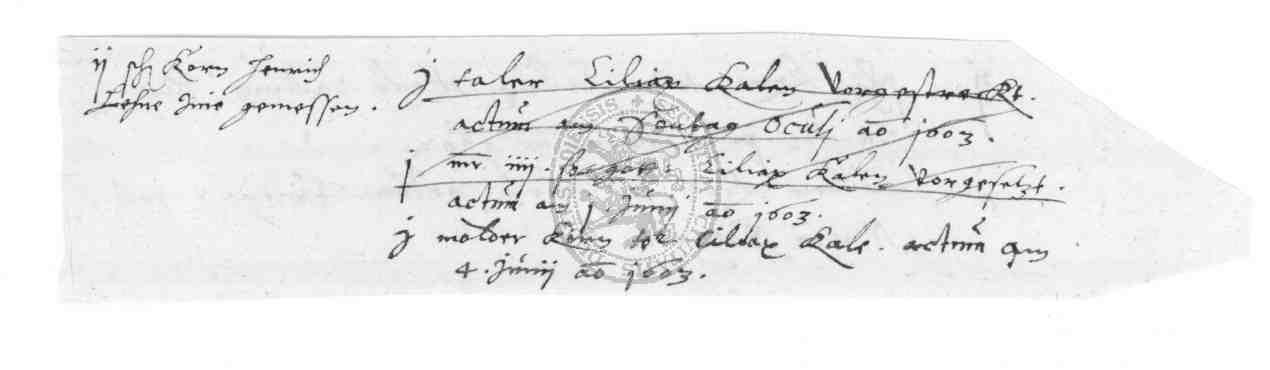 ij sch Korn Henrich
Lehne Inie gemessen.
j taler Ciliax Kalen Vorgestreckt.
actum am Sontag Oculi ao 1603.
j mr iiij. Ciliax Kalen Vorgesetzt.
actum am j Junij ao 1603.
j molder Korn Ciliax Kale. actum am
4. Junij ao 1603.